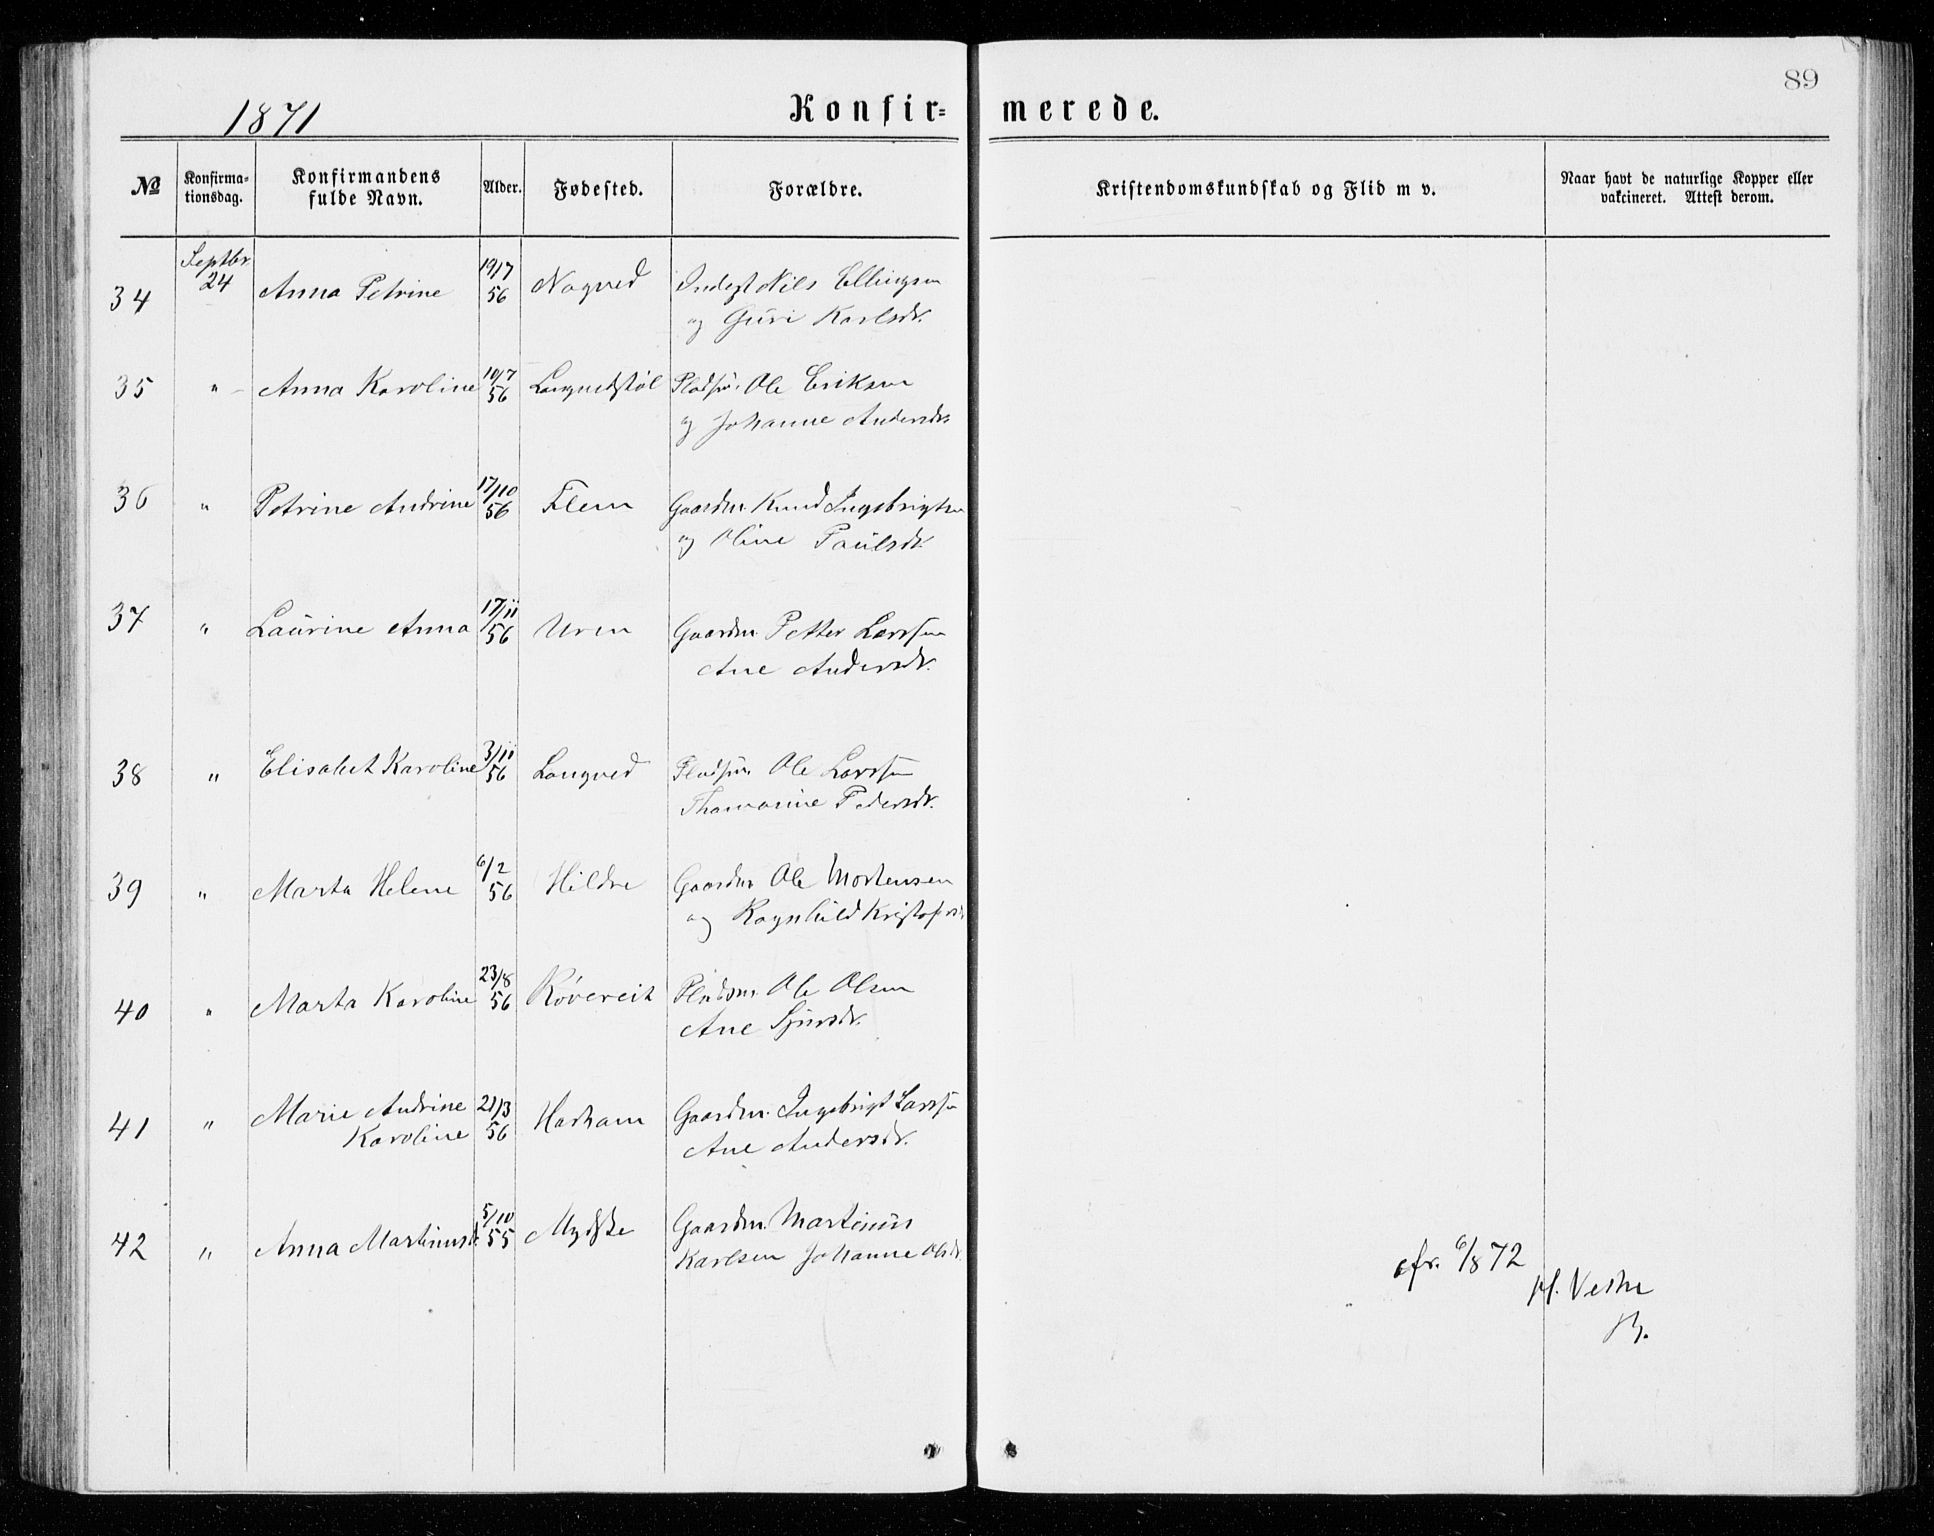 89
1871 Konfir= merede.
№ Konfirma-tionsdag. Konfirmandens fulde Navn. Alder. Fødested. Forældre. Kristendomskundskab og Flid m v. Naar havt de naturlige Kopper eller vakcineret. Attest derom.
34 Septbr. 24 Anna Petrine 19/7 56 Nogved Inderst Nils Ellingsen
og Guri Karlsdr.
35 " Anna Karoline 10/7 56 Longvedstøl Pladsm. Ole Eriksen
og Johanne Andersdr.
36 " Petrine Andrine 17/10 56 Flem Gaardm. Knud Ingebrigtsen
og Oline Paulsdr.
37 " Laurine Anna 17/11 56 Uren Gaardm. Petter Larssen
Ane Andersdr.
38 " Elisabet Karoline 3/11 56 Longved Pladsm. Ole Larssen
Thomasine Pedersdr.
39 " Marta Helene 6/2 56 Hildre Gaardm. Ole Mortensen
og Ragnhild Kristofersdr.
40 " Marta Karoline 23/8 56 Røvereit Pladsm. Ole Olsen
Ane Sjursdr.
41 " Marie Andrine 21/3 56 Harham Gaardm. Ingebrigt Larssen
Karoline Ane Andersdr.
42 " Anna Martinusd. 5/10 55 Gaardm. Martinus
Karlsen Johanne Olsdr.
cfr. 6/8 72